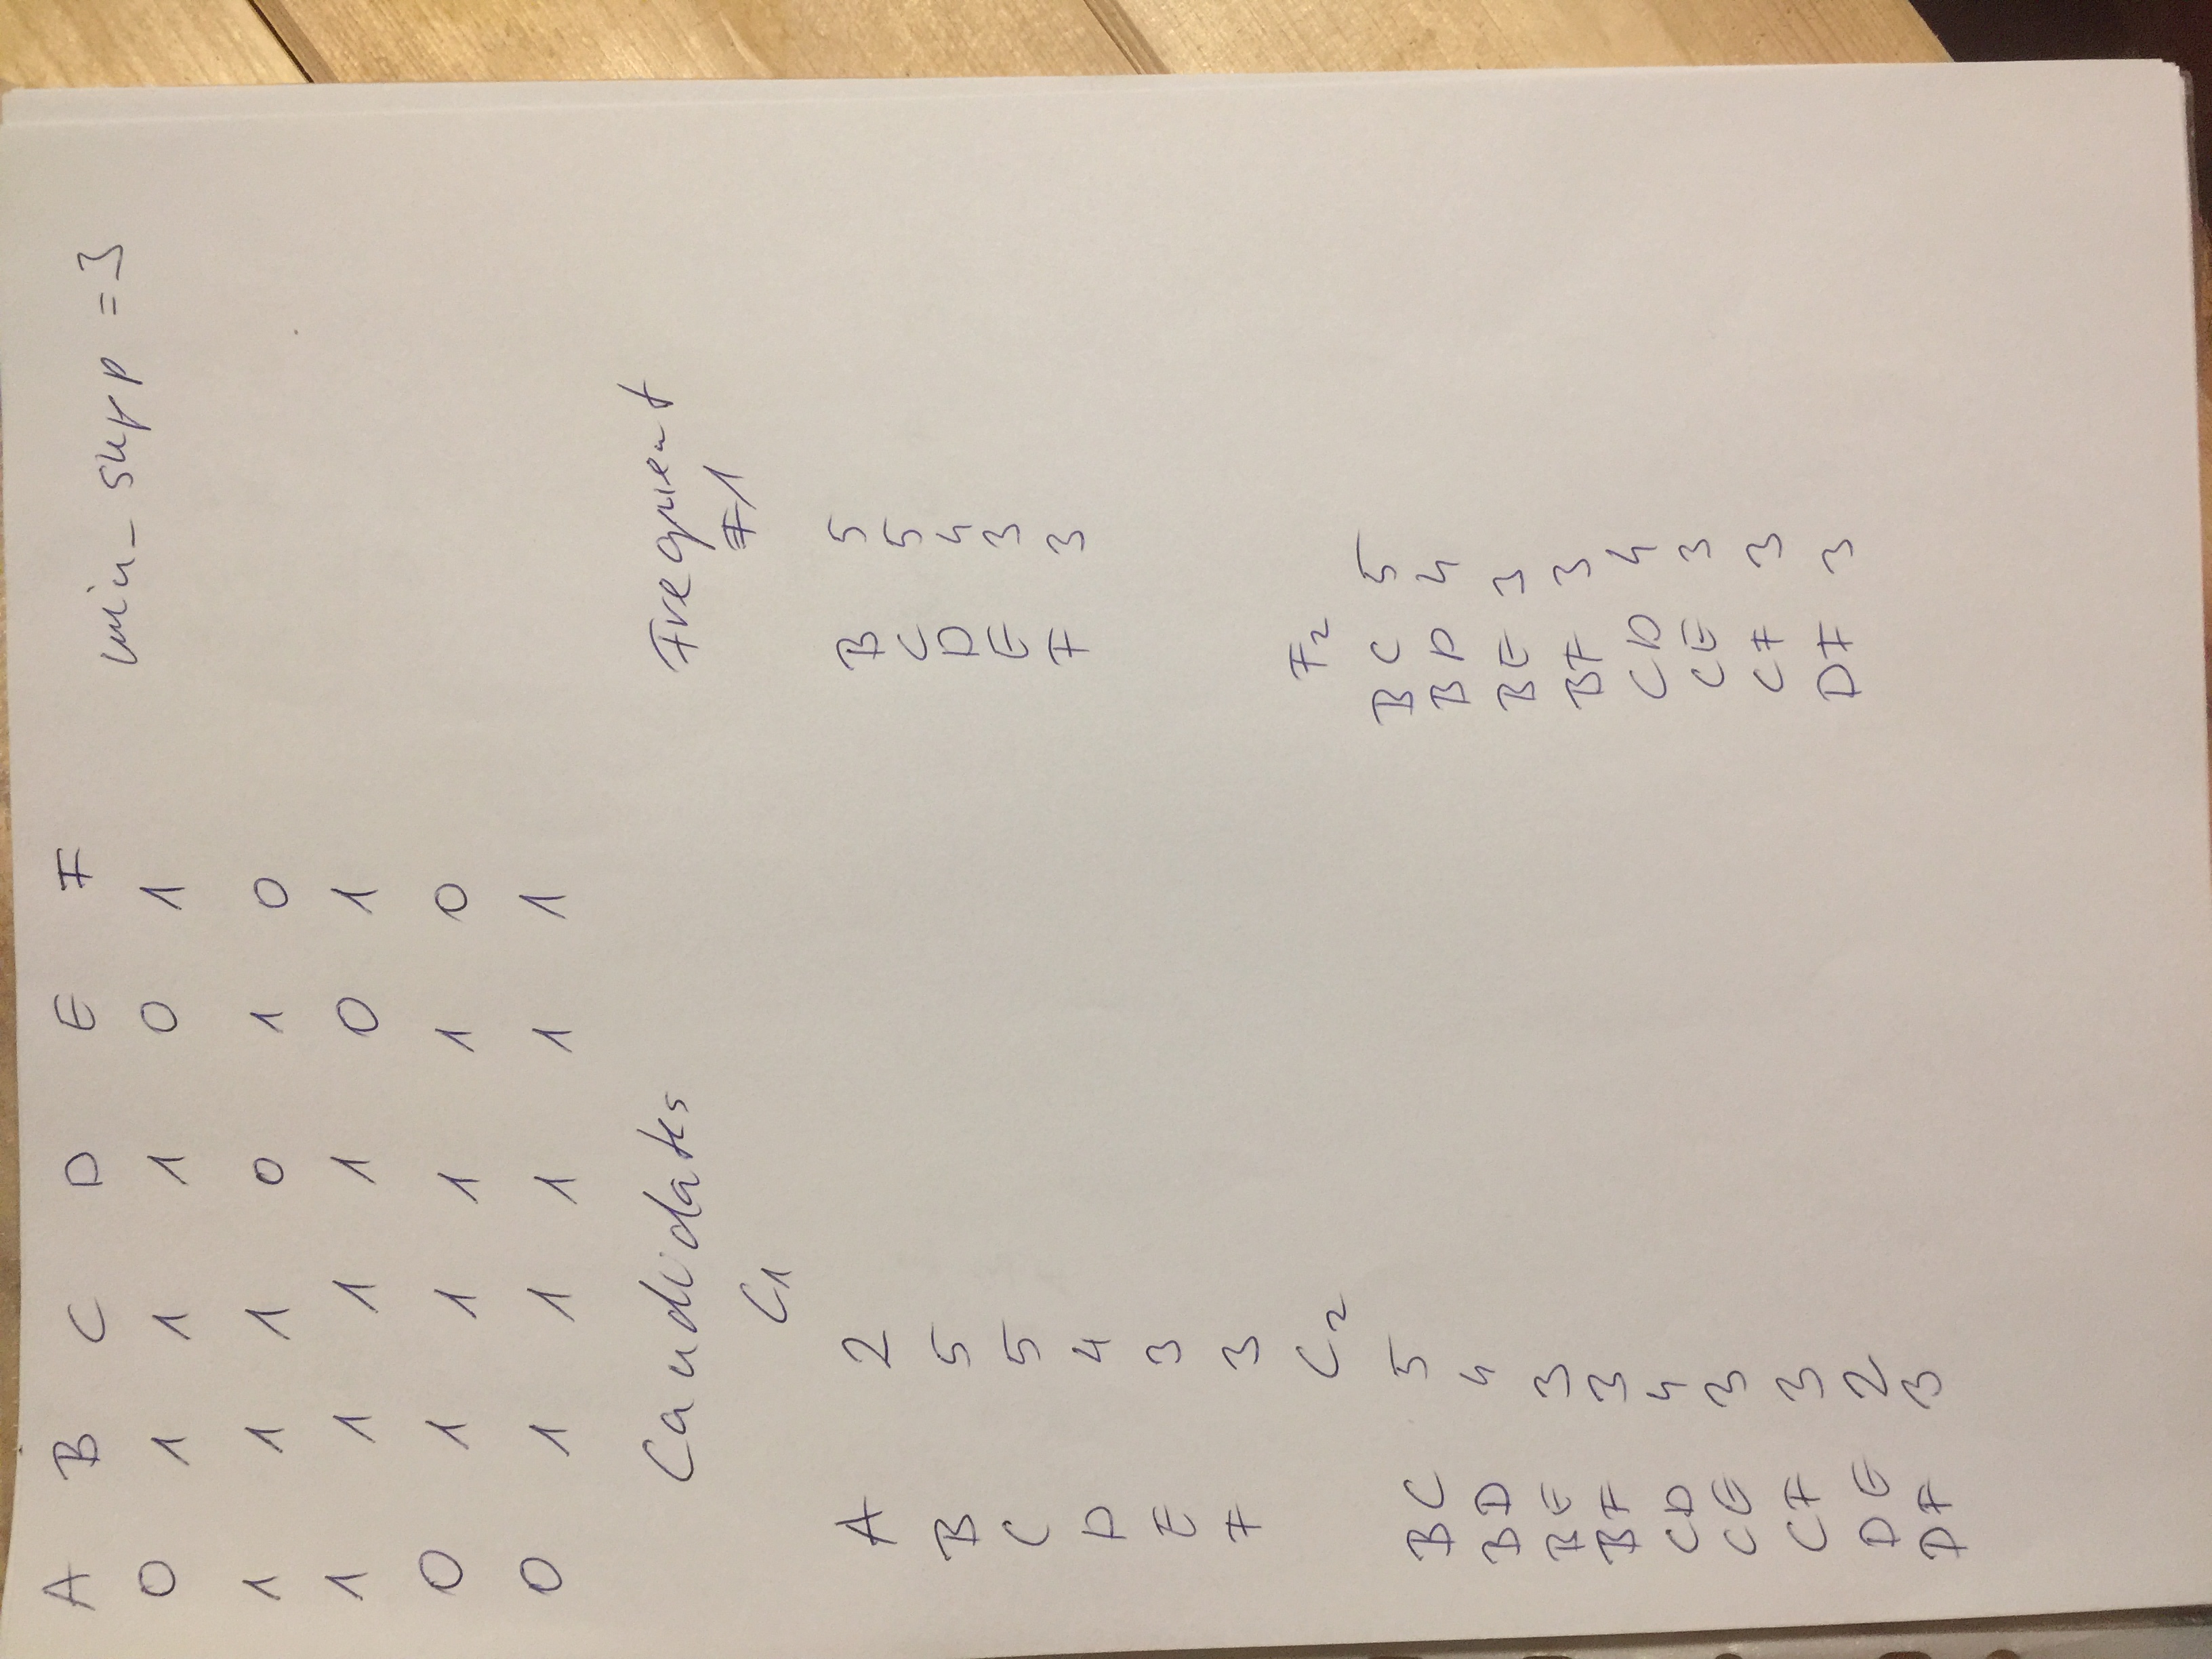 A B C D E F
min_supp = 3
0 1 1 1 0 1
1 1 1 0 1 0
1 1 1 1 0 1
0 1 1 1 1 0
0 1 1 1 1 1
Candidates
C1
A 2
B 5
C 5
D 4
E 3
F 3
C2
BC 5
BD 4
BE 3
BF 3
CD 4
CE 3
CF 3
DE 2
DF 3
Frequent
F1
B 5
C 5
D 4
E 3
F 3
F2
BC 5
BD 4
BE 3
BF 3
CD 4
CE 3
CF 3
DF 3